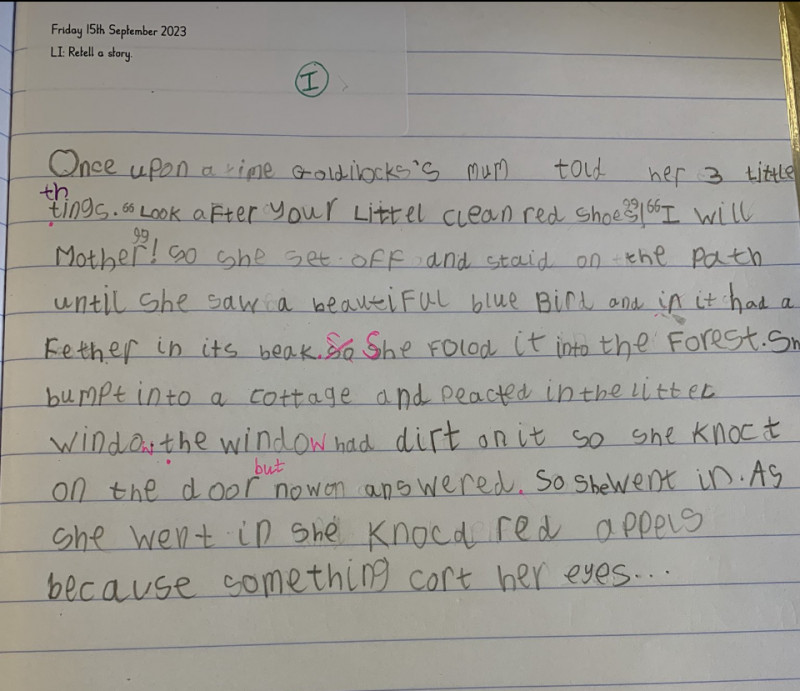 Friday 15th September 2023
LI: Retell a story.
I
Once upon a time Goldilocks's mum told her 3 little
th
tings. "Look after your Littel clean red shoes"! "I will
Mother"! So she set off and staid on the path
until she saw a beautiful blue Bird and in it had a
Fether in its beak. So She folod it into the Forest. Sh
bumpt into a cottage and peacted in the littel
window. the window had dirt on it so she knoct
but
on the door nowon answered. So she went in. As
she went in she knocd red appels
because something cort her eyes...